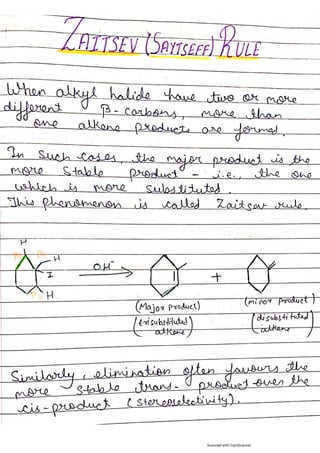 ZAITSEV (SAYTSEFF) RULE
When alkyl halide have two or more
different β-carbons, more than
one alkene products are formed.
In such cases, the major product is the
more stable product - i.e., the one
which is more substituted.
This phenomenon is called Zaitsav rule.
H
β₁ β₂ H
I
β₃ H
OH⁻
+
(Major Product) (minor product)
(trisubstituted alkene) (disubstituted alkene)
Similarly, elimination often favours the
more stable trans- product over the
cis-product (stereoselectivity).
Scanned with CamScanner